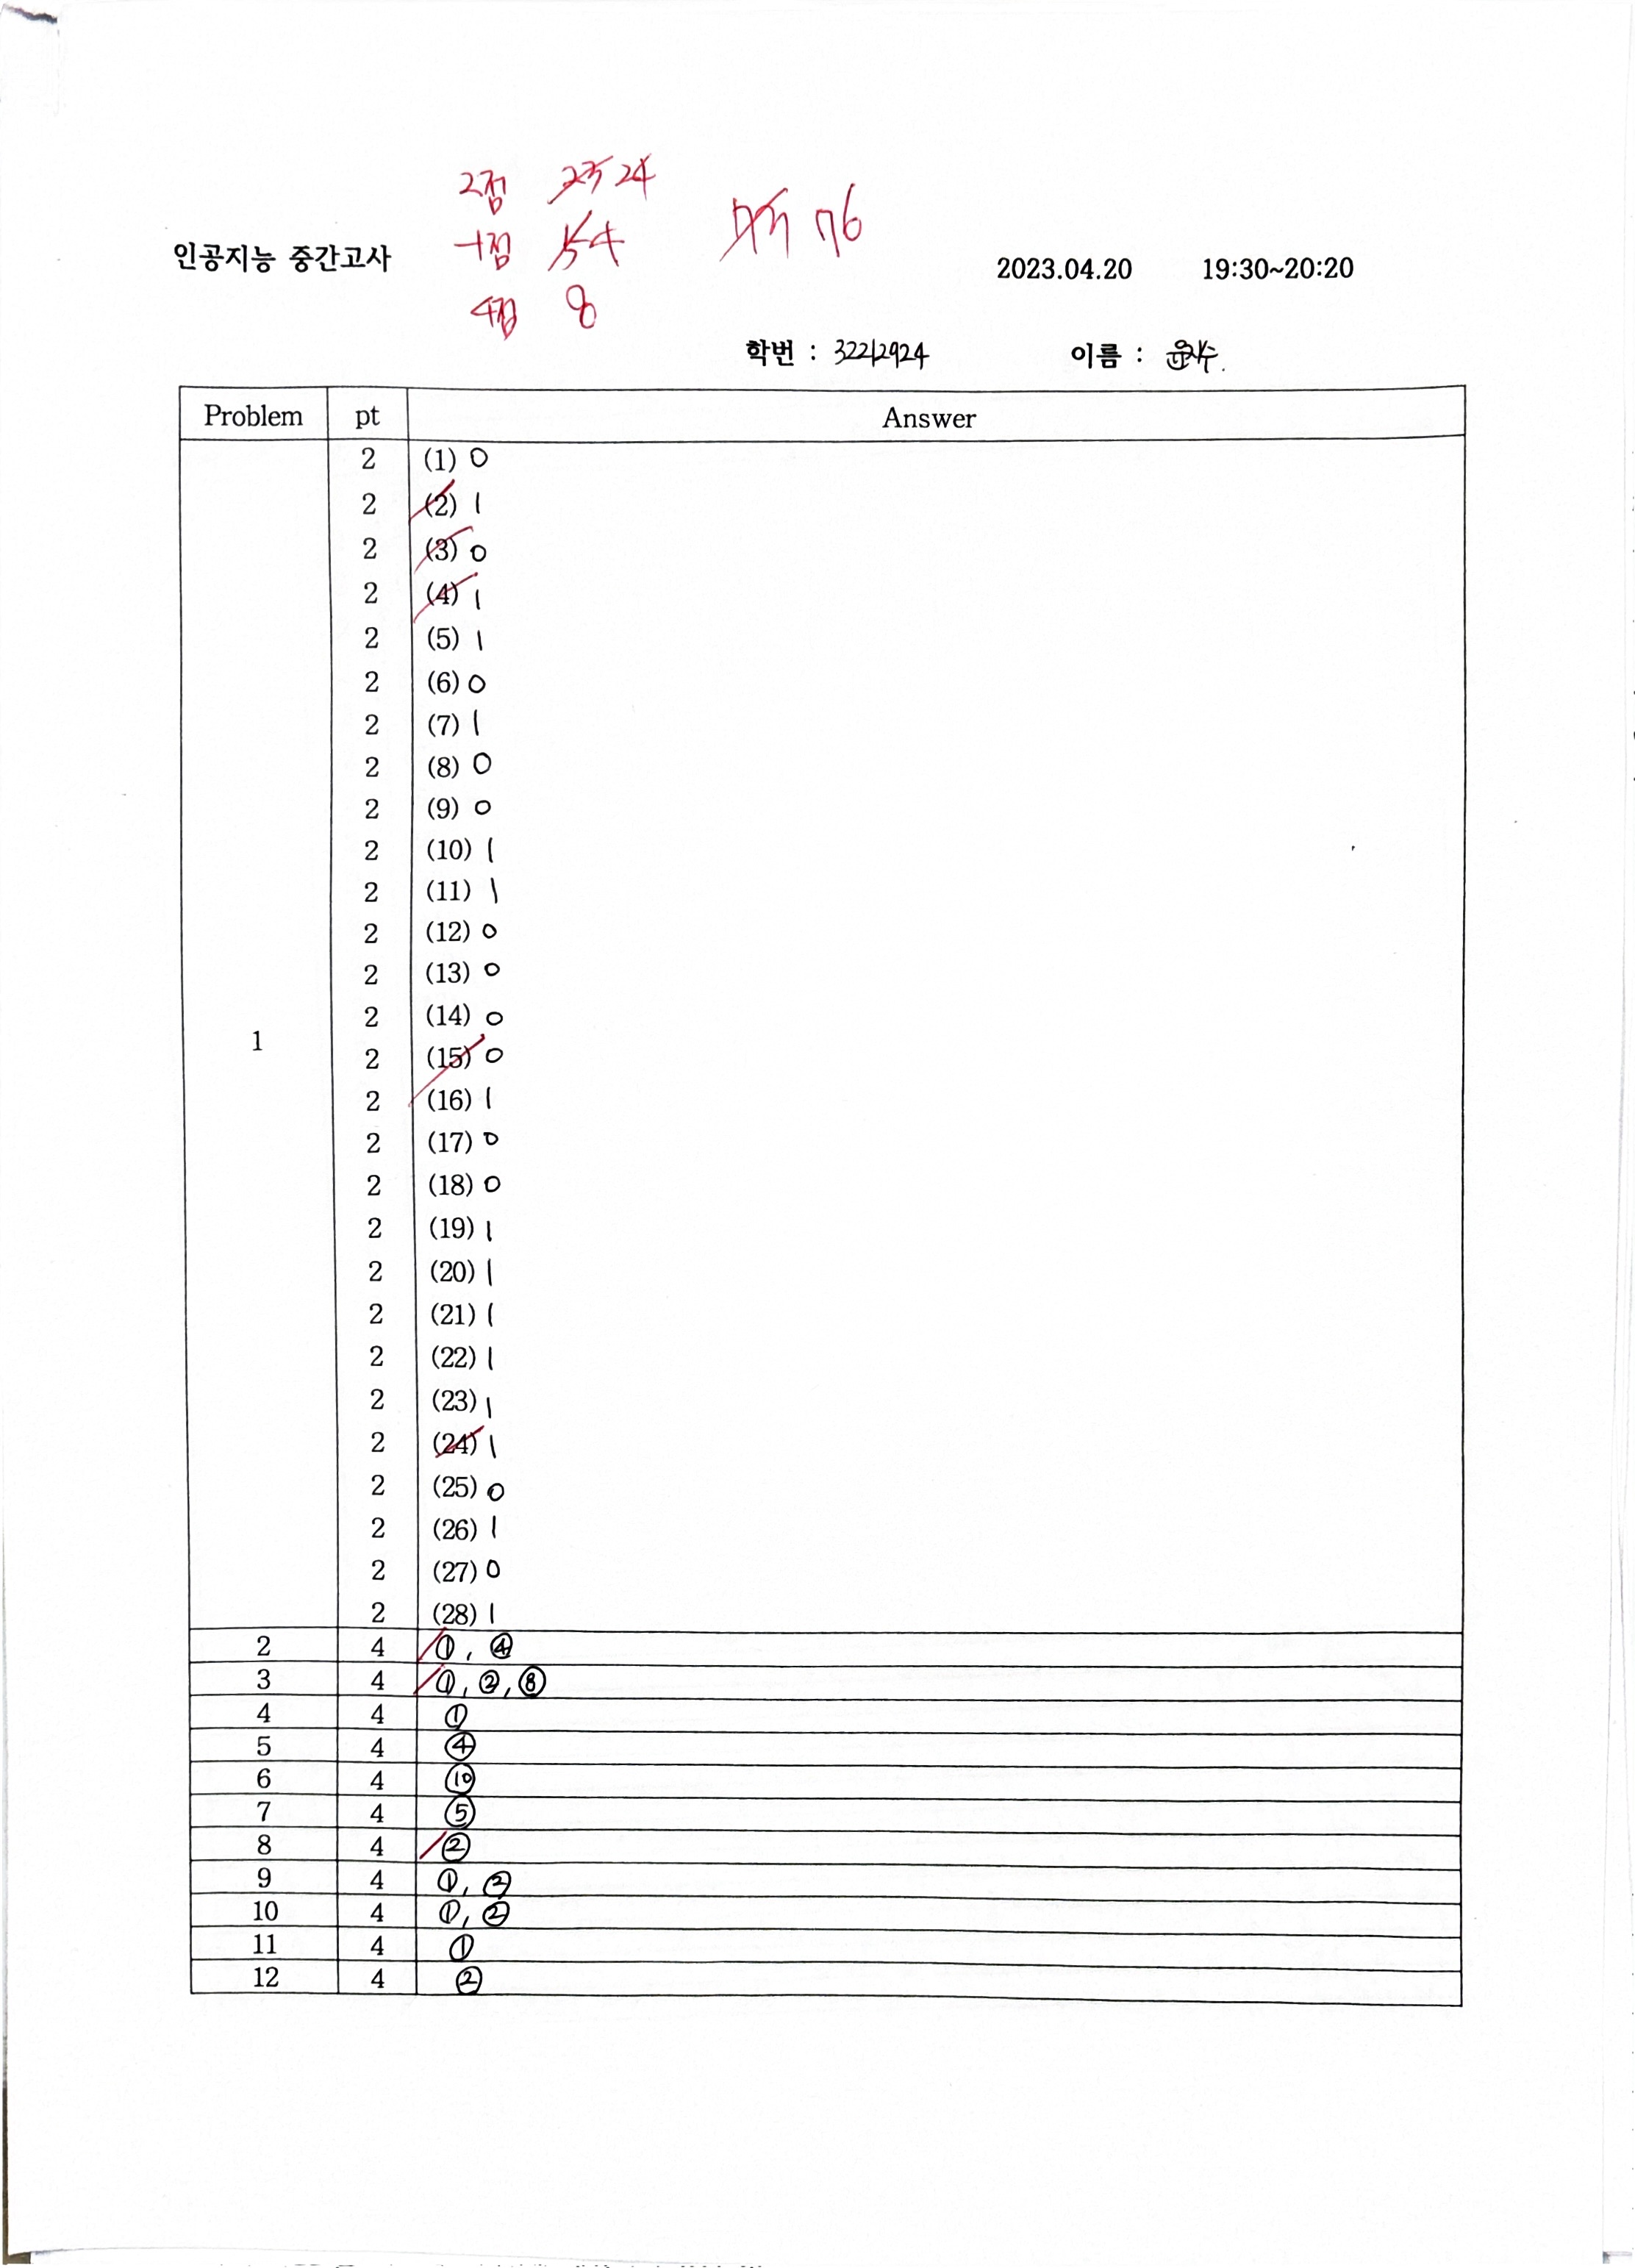 2점 23 24
-1점 5 4
76
인공지능 중간고사
2023.04.20 19:30~20:20
4점 8
학번 : 32212924 이름 :
Problem pt Answer
2 (1) 0
2 (2) 1
2 (3) 0
2 (4) 1
2 (5) 1
2 (6) 0
2 (7) 1
2 (8) 0
2 (9) 0
2 (10) 1
2 (11) 1
2 (12) 0
2 (13) 0
2 (14) 0
1
2 (15) 0
2 (16) 1
2 (17) 0
2 (18) 0
2 (19) 1
2 (20) 1
2 (21) 1
2 (22) 1
2 (23) 1
2 (24) 1
2 (25) 0
2 (26) 1
2 (27) 0
2 (28) 1
2 4 ①, ④
3 4 ①, ②, ⑧
4 4 ①
5 4 ④
6 4 ⑩
7 4 ⑤
8 4 ②
9 4 ①, ②
10 4 ①, ②
11 4 ①
12 4 ②